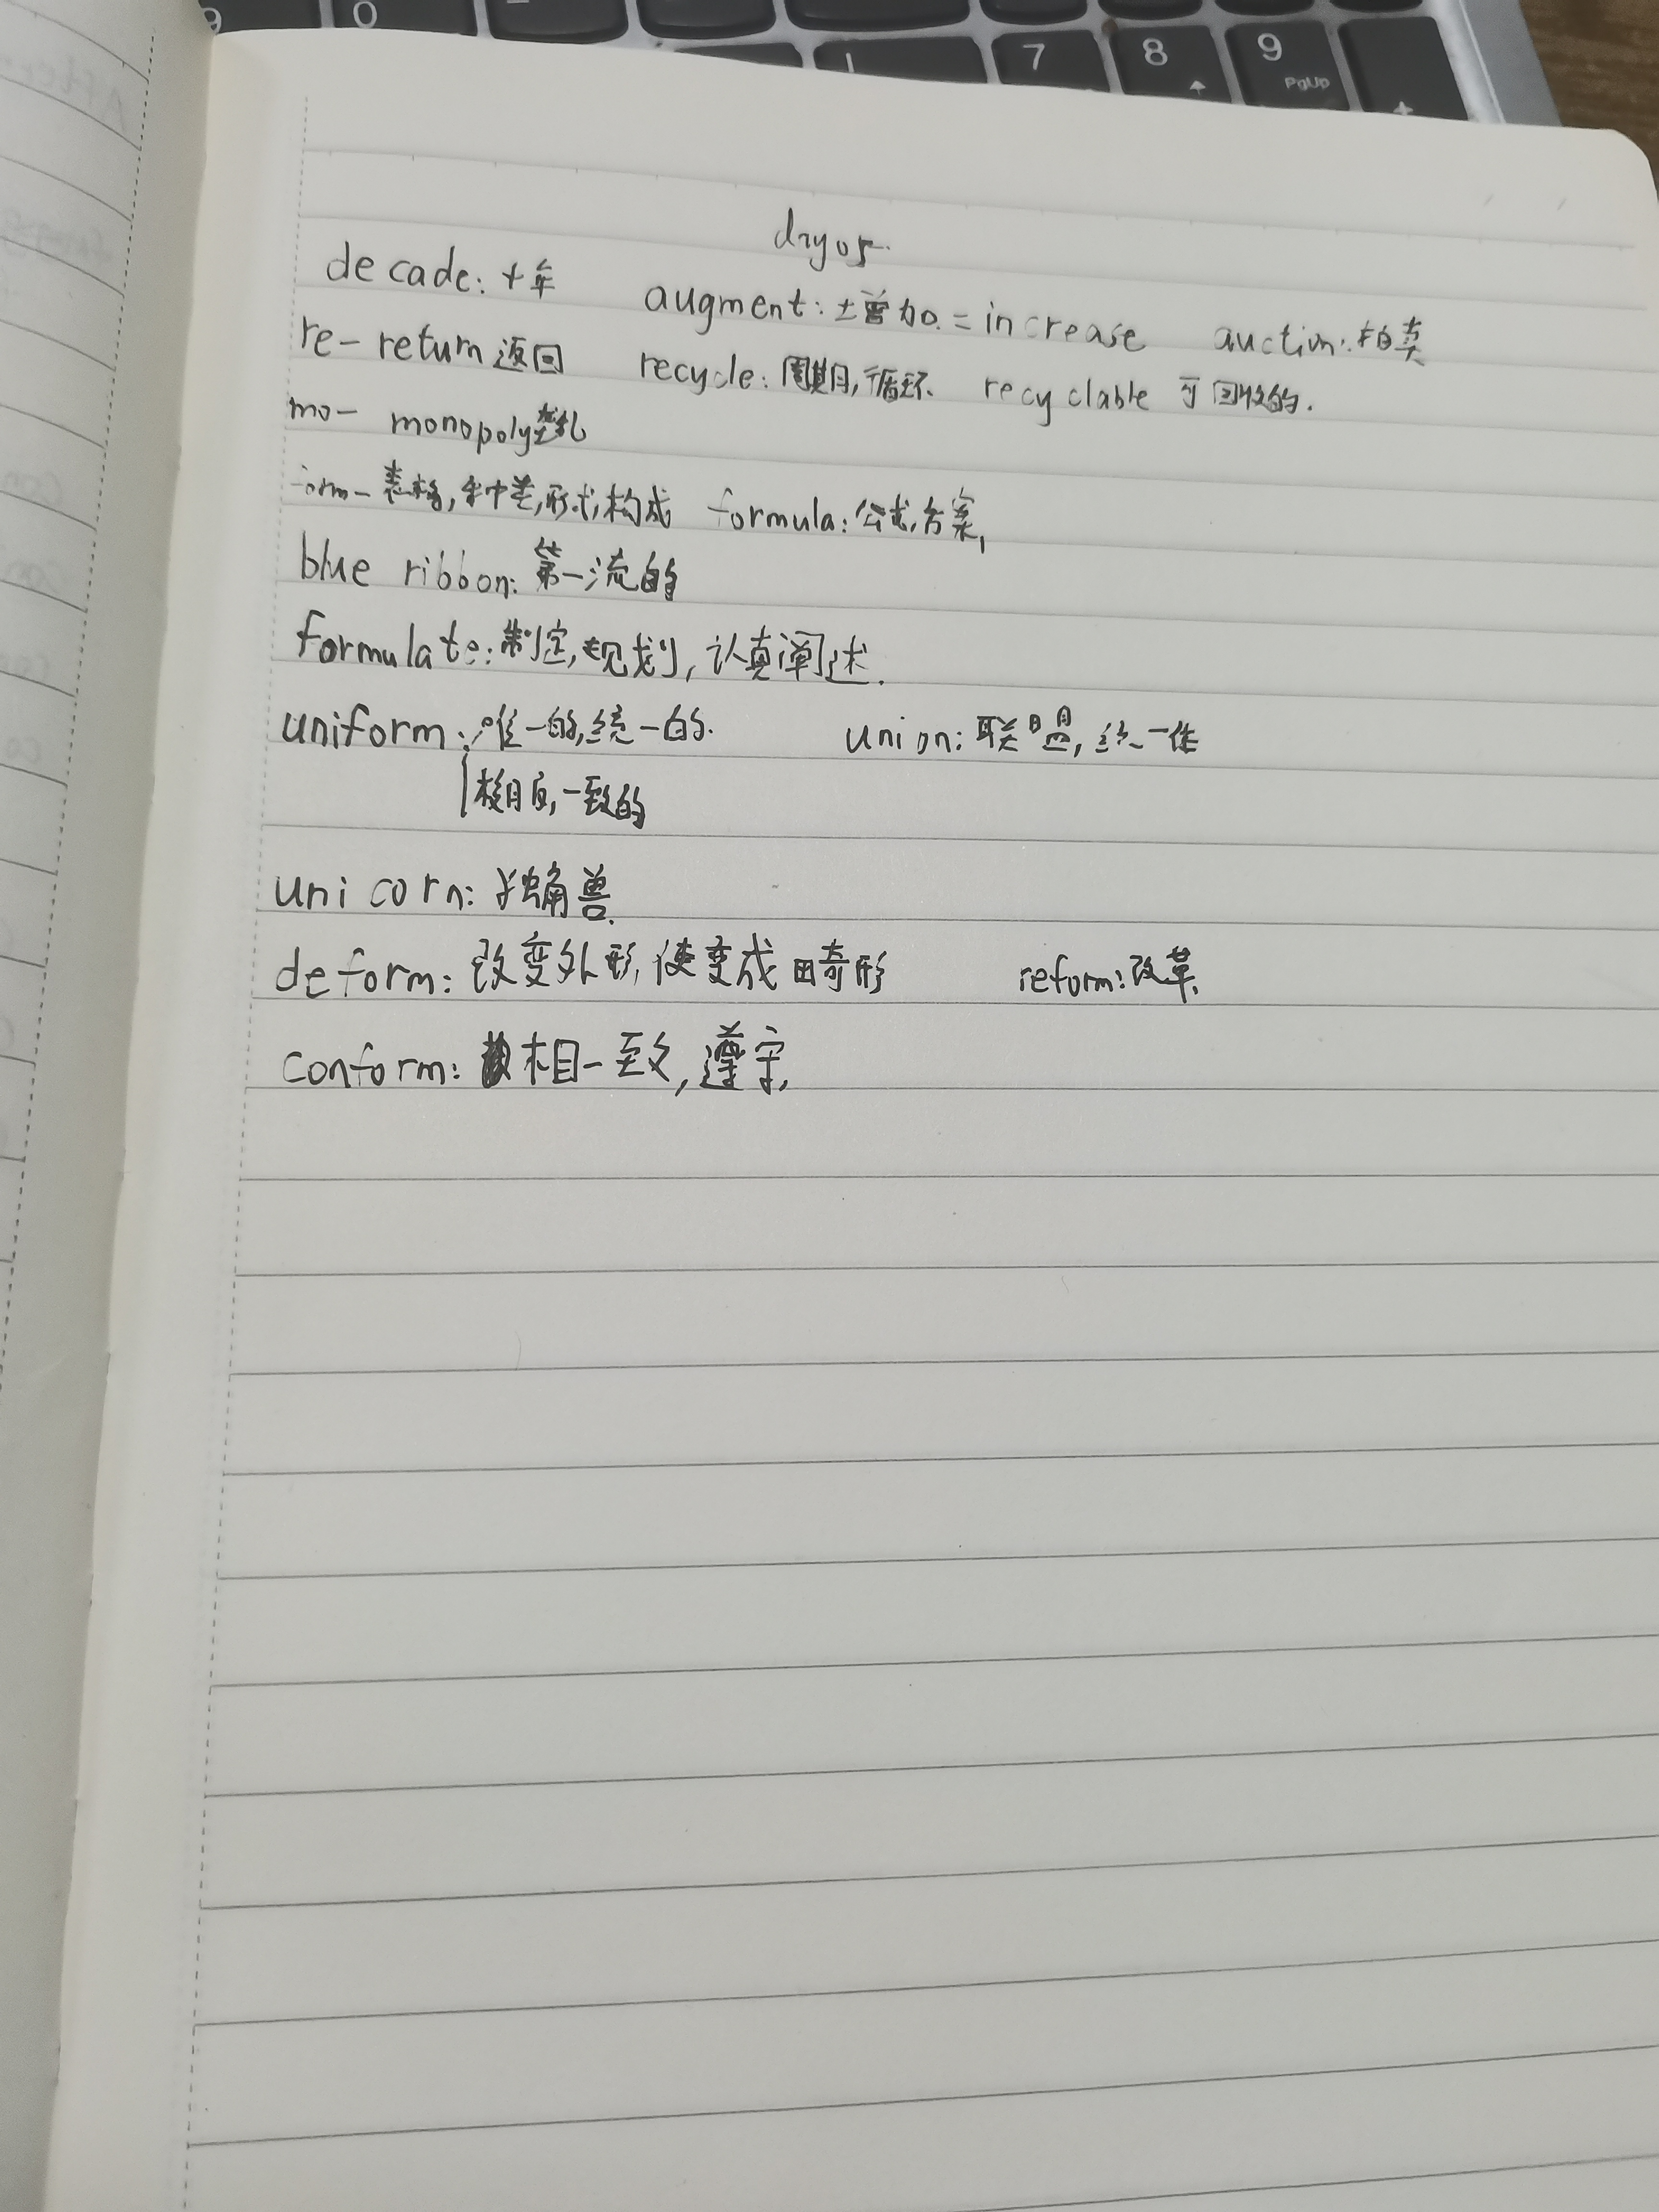 9 0 7 8 9 PgUp
day05.
decade: 十年 augment: 增加 = increase auction: 拍卖
re- return 返回 recycle: 周期,循环 recyclable 可回收的.
mo- monopoly 垄断
form- 表格, 种类,形式,构成 formula: 公式,方案,
blue ribbon: 第一流的
formulate: 制定,规划, 认真阐述.
uniform: 唯一的,统一的. union: 联盟, 统一体
相同, 一致的
unicorn: 独角兽.
deform: 改变外形,使变成畸形 reform: 改革.
conform: 相一致, 遵守,